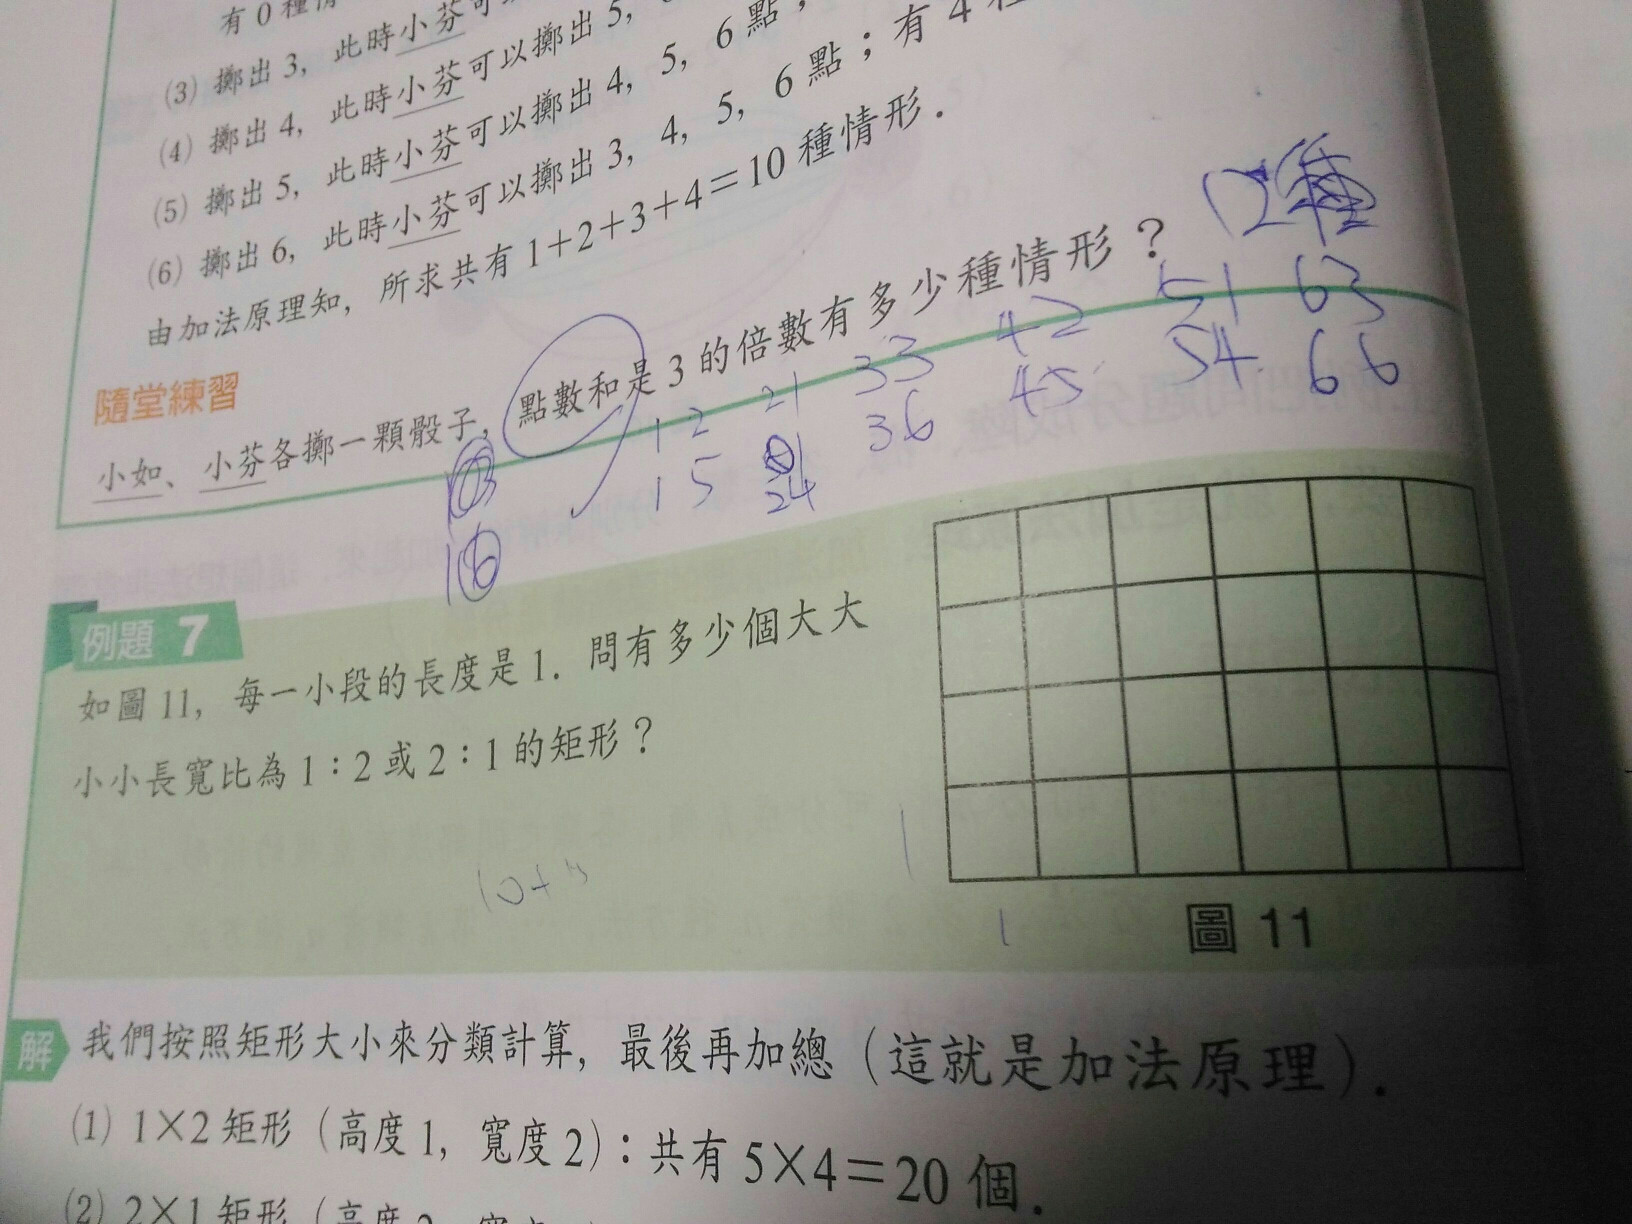 有0種情
(3) 擲出3，此時小芬可
(4) 擲出4，此時小芬可以擲出5，
(5) 擲出5，此時小芬可以擲出4，5，6點；
(6) 擲出6，此時小芬可以擲出3，4，5，6點；有4
由加法原理知，所求共有1+2+3+4=10種情形．
隨堂練習
小如、小芬各擲一顆骰子，點數和是3的倍數有多少種情形？
12種
12 21 33 42 51 63
15 24 36 45 54 66
例題 7
如圖11，每一小段的長度是1．問有多少個大大
小小長寬比為1：2或2：1的矩形？
10+
1
1
圖 11
解 我們按照矩形大小來分類計算，最後再加總（這就是加法原理）．
(1) 1×2矩形（高度1，寬度2）：共有5×4=20個．
(2) 2×1矩形（高度2，寬